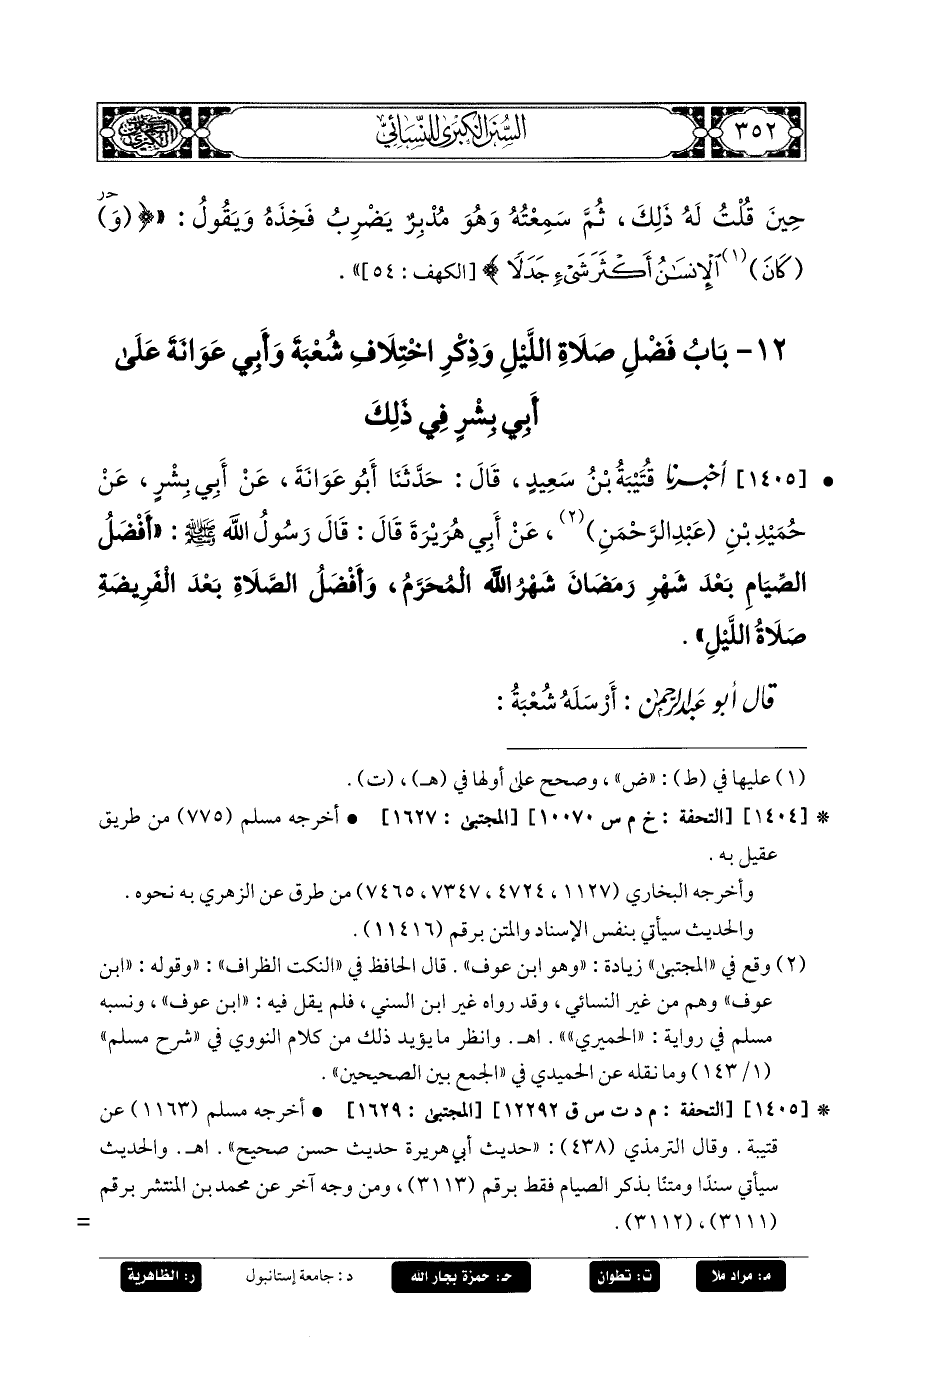 ٣٥٢
السنن الكبرى للنسائي
حِينَ قُلْتُ لَهُ ذَلِكَ، ثُمَّ سَمِعْتُهُ وَهُوَ مُدْبِرٌ يَضْرِبُ فَخِذَهُ وَيَقُولُ: «﴿(وَ)
(كَانَ)(١) ٱلْإِنسَٰنُ أَكْثَرَ شَىْءٍ جَدَلًا ﴾ [الكهف: ٥٤]».
١٢- بَابُ فَضْلِ صَلَاةِ اللَّيْلِ وَذِكْرِ اخْتِلَافِ شُعْبَةَ وَأَبِي عَوَانَةَ عَلَىٰ
أَبِي بِشْرٍ فِي ذَلِكَ
• [١٤٠٥] أخبرنا قُتَيْبَةُ بْنُ سَعِيدٍ، قَالَ: حَدَّثَنَا أَبُو عَوَانَةَ، عَنْ أَبِي بِشْرٍ، عَنْ
حُمَيْدِ بْنِ (عَبْدِ الرَّحْمَنِ)(٢)، عَنْ أَبِي هُرَيْرَةَ قَالَ: قَالَ رَسُولُ اللَّه ﷺ: «أَفْضَلُ
الصِّيَامِ بَعْدَ شَهْرِ رَمَضَانَ شَهْرُ اللَّه الْمُحَرَّمُ، وَأَفْضَلُ الصَّلَاةِ بَعْدَ الْفَرِيضَةِ
صَلَاةُ اللَّيْلِ».
قال أبو عبد الرحمن: أَرْسَلَهُ شُعْبَةُ:
(١) عليها في (ط): «ض»، وصحح على أولها في (هـ)، (ت).
* [١٤٠٤] [التحفة: خ م س ١٠٠٧٠] [المجتبى: ١٦٢٧] • أخرجه مسلم (٧٧٥) من طريق
عقيل به.
وأخرجه البخاري (١١٢٧، ٤٧٢٤، ٧٣٤٧، ٧٤٦٥) من طرق عن الزهري به نحوه.
والحديث سيأتي بنفس الإسناد والمتن برقم (١١٤١٦).
(٢) وقع في «المجتبى» زيادة: «وهو ابن عوف». قال الحافظ في «النكت الظراف»: «وقوله: «ابن
عوف» وهم من غير النسائي، وقد رواه غير ابن السني، فلم يقل فيه: «ابن عوف»، ونسبه
مسلم في رواية: «الحميري»». اهـ. وانظر ما يؤيد ذلك من كلام النووي في «شرح مسلم»
(١/ ١٤٣) وما نقله عن الحميدي في «الجمع بين الصحيحين».
* [١٤٠٥] [التحفة: م د ت س ق ١٢٢٩٢] [المجتبى: ١٦٢٩] • أخرجه مسلم (١١٦٣) عن
قتيبة. وقال الترمذي (٤٣٨): «حديث أبي هريرة حديث حسن صحيح». اهـ. والحديث
سيأتي سندًا ومتنًا بذكر الصيام فقط برقم (٣١١٣)، ومن وجه آخر عن محمد بن المنتشر برقم
(٣١١١)، (٣١١٢). =
م: مراد ملا ت: تطوان حـ: حمزة بجار الله د: جامعة إستانبول ر: الظاهرية